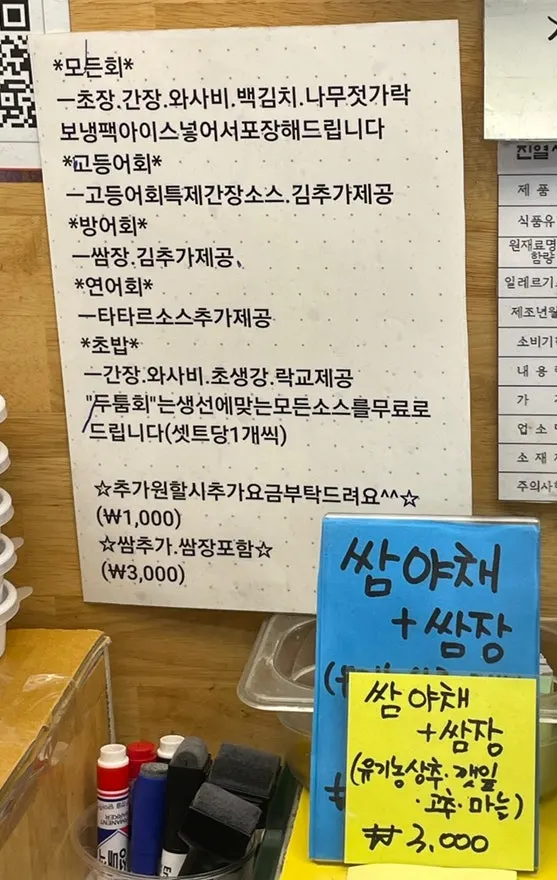 *모든회*
ㅡ초장.간장.와사비.백김치.나무젓가락
보냉팩아이스넣어서포장해드립니다
*고등어회*
ㅡ고등어회특제간장소스.김추가제공
*방어회*
ㅡ쌈장.김추가제공.
*연어회*
ㅡ타타르소스추가제공
*초밥*
ㅡ간장.와사비.초생강.락교제공
"두툼회"는생선에맞는모든소스를무료로
드립니다(셋트당1개씩)
☆추가원할시추가요금부탁드려요^^☆
(₩1,000)
☆쌈추가.쌈장포함☆
(₩3,000)
쌈야채
+쌈장
쌈야채
+쌈장
(유기농상추·깻잎
·고추·마늘)
₩3,000
제 품
식품유
원재료명
함량
일레르기
제조년월
소비기
내 용
가
업 소
소 재
주의사